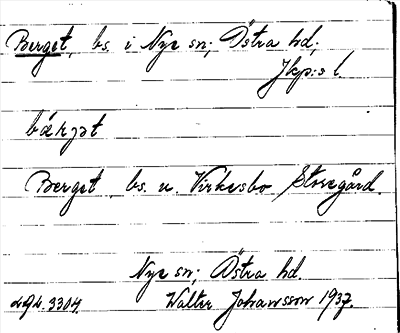 Berget, bs. i Nye sn; Östra hd;
Jkp:s l.
bærjət
Berget, bs. u. Virkesbo Storegård.
Nye sn; Östra hd.
Walter Johansson 1937.